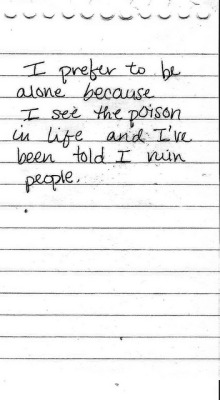 I prefer to be
alone because
I see the poison
in life and I've
been told I ruin
people.